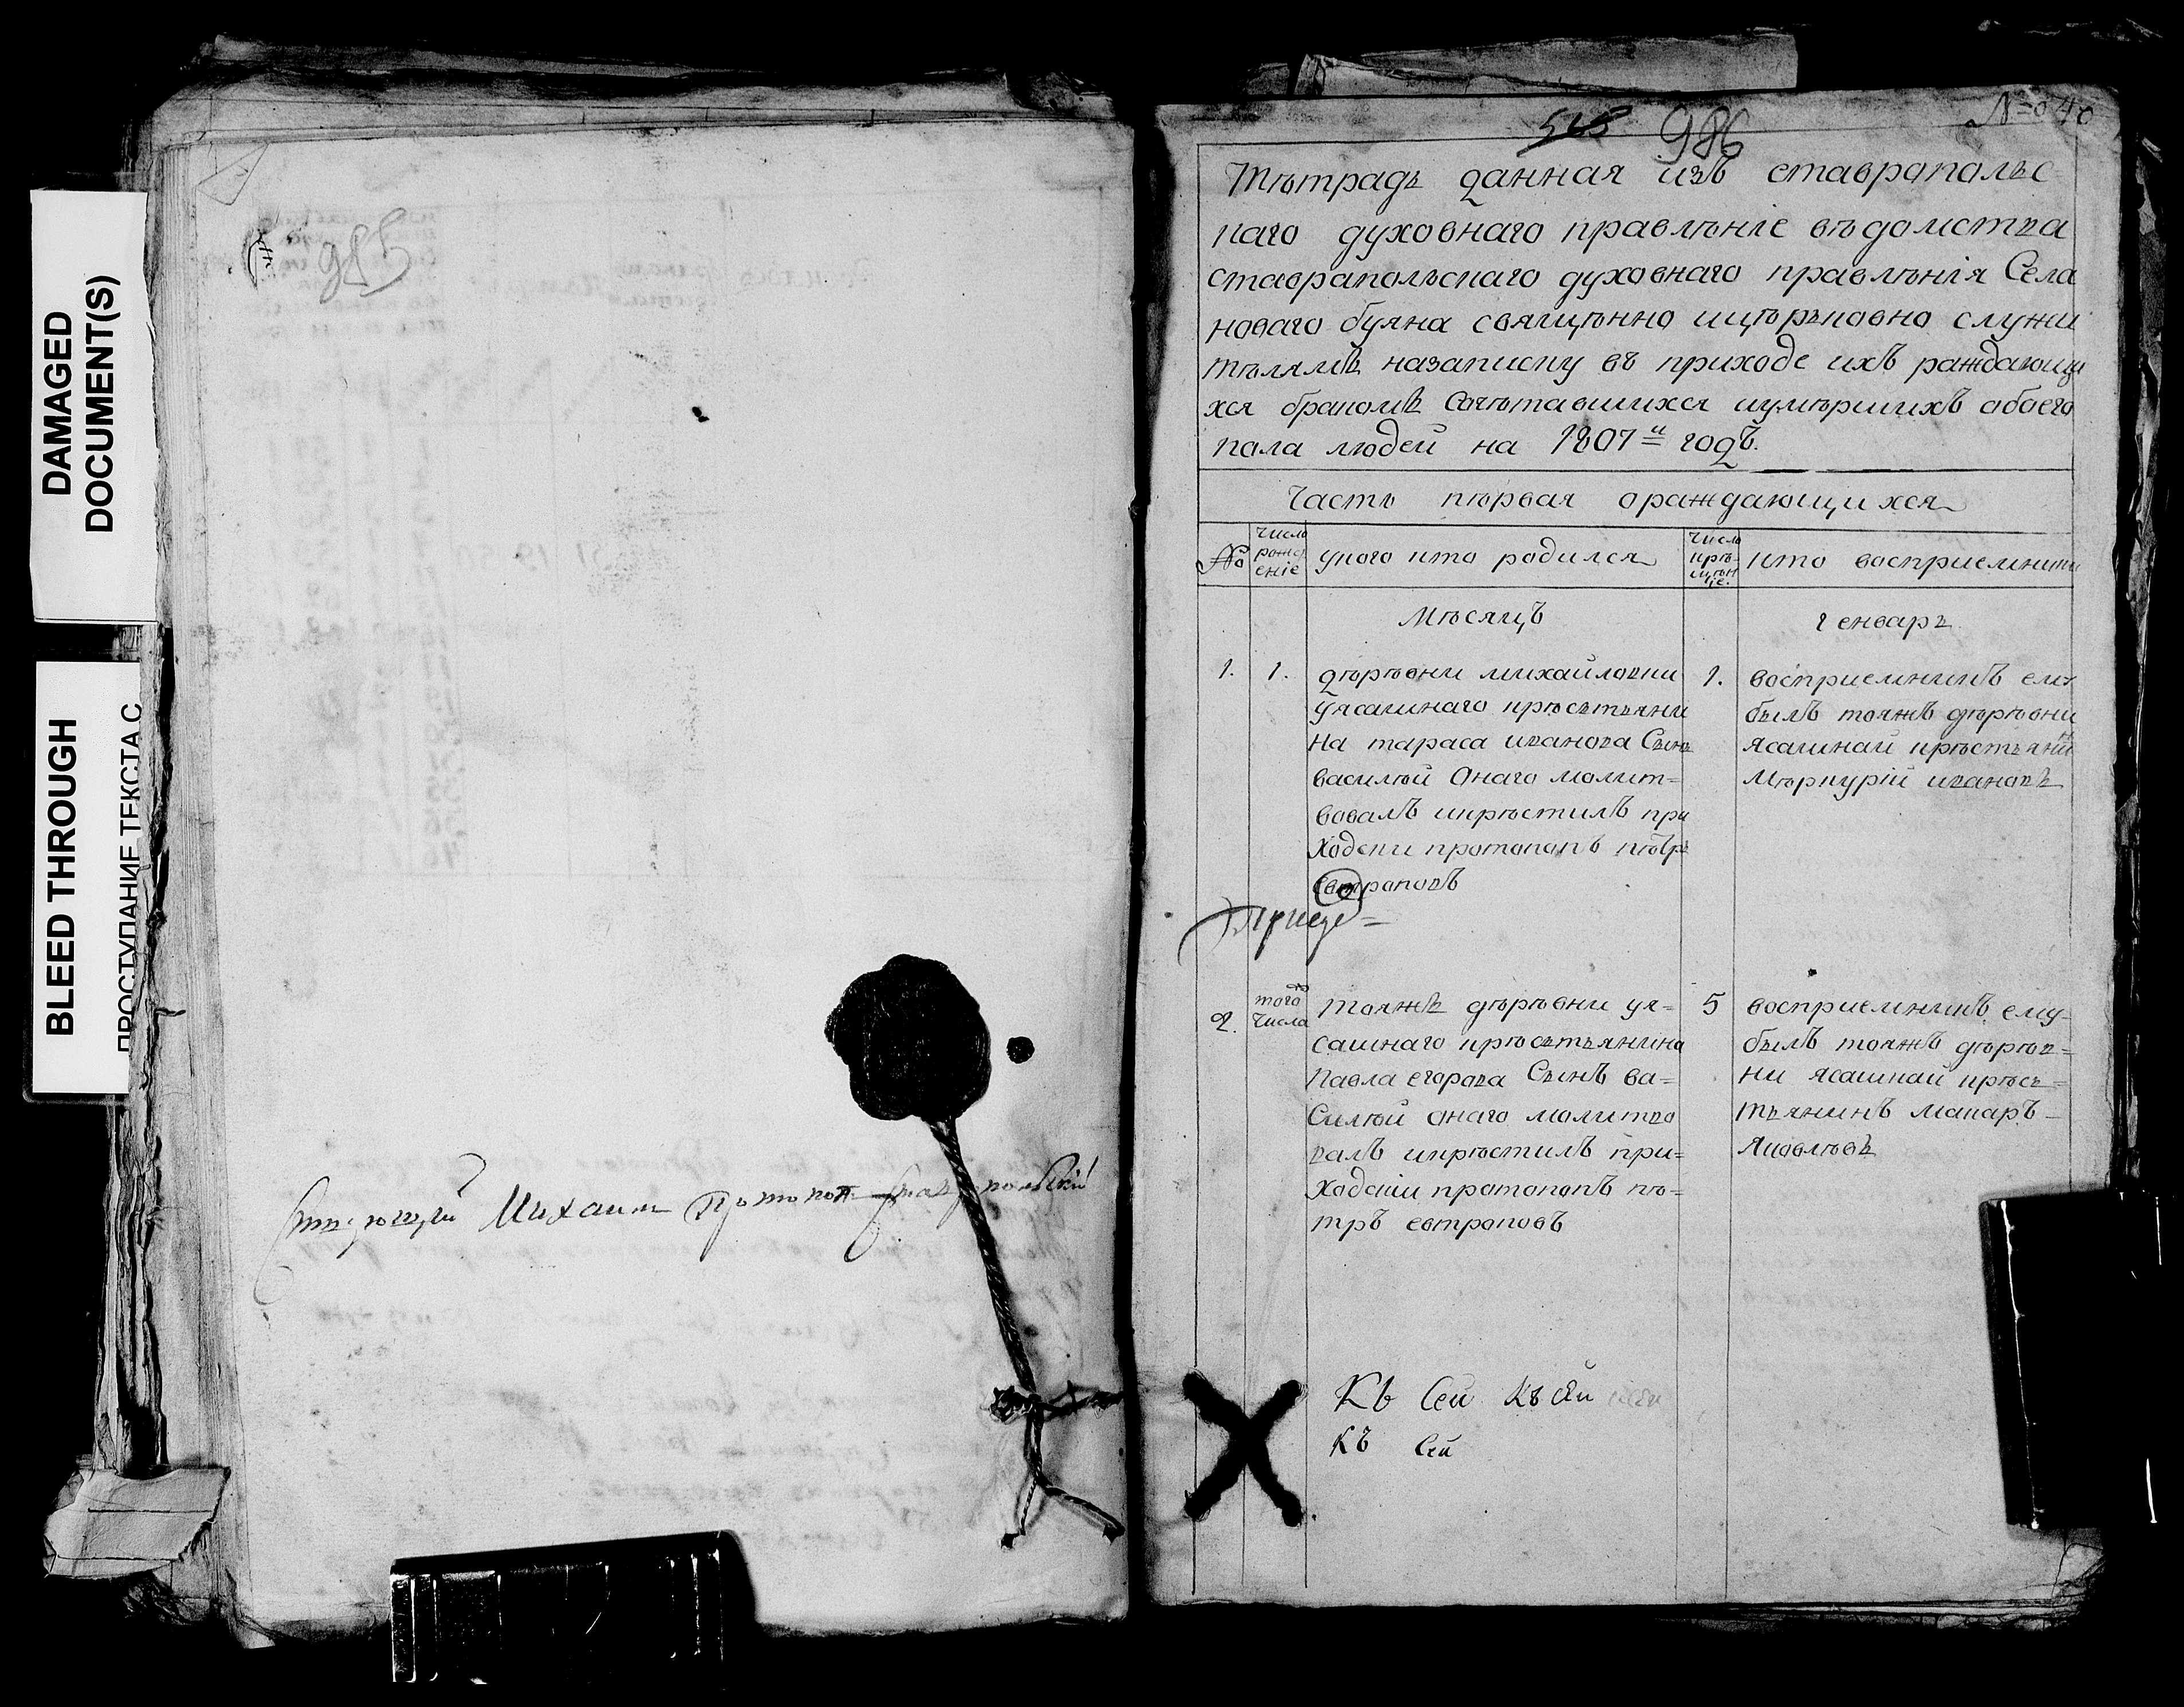 DAMAGED
DOCUMENT(S)
BLEED THROUGH
ПРОСТУПАНИЕ ТЕКСТА С
985
Михаил Протопоп
№ 040
518 986
Тѣтрадь данная изъ ставрапольс
каго духовнаго правлѣніе вѣдомства
ставрапольскаго духовнаго правлѣнія Села
новаго буяна свящѣнно ицѣрковно служи
тѣлямъ назаписку въ приходе ихъ раждающи
хся бракомъ сочѣтавшихся иумѣршихъ обоего
пола людей на 1807 и годъ.
Часть пѣрвая ораждающихся
№ число рожд еніе укого кто родился число крѣ щѣн іе. кто восприемники
Мѣсяцъ генварь
1. 1. дѣрѣвни михайловки
уясашнаго крѣсьтьяни
на тараса иванова Сынъ
василѣй онаго молит=
вовалъ икрѣстилъ при
ходски протопопъ пѣтръ
евтраповъ
1. восприемникъ ему
былъ тояжъ дѣрѣвни
ясашнай крѣстьянинъ
Мѣркурій ивановъ
2. того числа тояжъ дѣрѣвни уя=
сашнаго крѣсьтьянина
Павла егорова Сынъ ва=
силѣй онаго молитво
валъ икрѣстилъ при=
ходскіи протопопъ пѣ=
тръ евтраповъ
5 восприемникъ ему=
былъ тояжъ дѣрѣв=
ни ясашнай крѣсь=
тьянинъ макаръ
Яковлѣвъ
Къ Сей Къ сей
Къ Сей